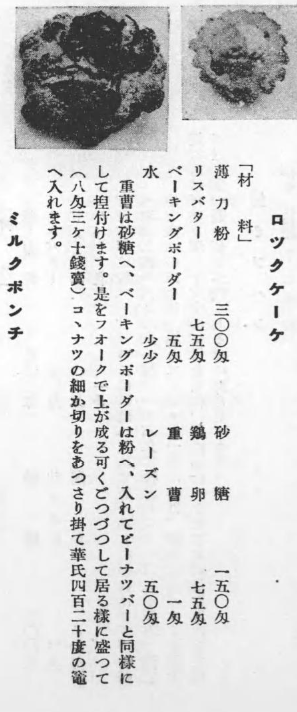 ロツクケーケ
「材料」
薄力粉 三〇〇匁 砂糖 一五〇匁
リスバター 七五匁 鶏卵 七五匁
ベーキングポーダー 五匁 重曹 一匁
水 少少 レーズン 五〇匁
重曹は砂糖へ、ベーキングポーダーは粉へ、入れてピーナツバーと同様に
して捏付けます。是をフオークで上が成る可くごつづつして居る様に盛つて
(八匁三ケ十錢賣)コヽナツの細か切りをあつさり掛て華氏四百二十度の竈
へ入れます。
ミルクポンチ